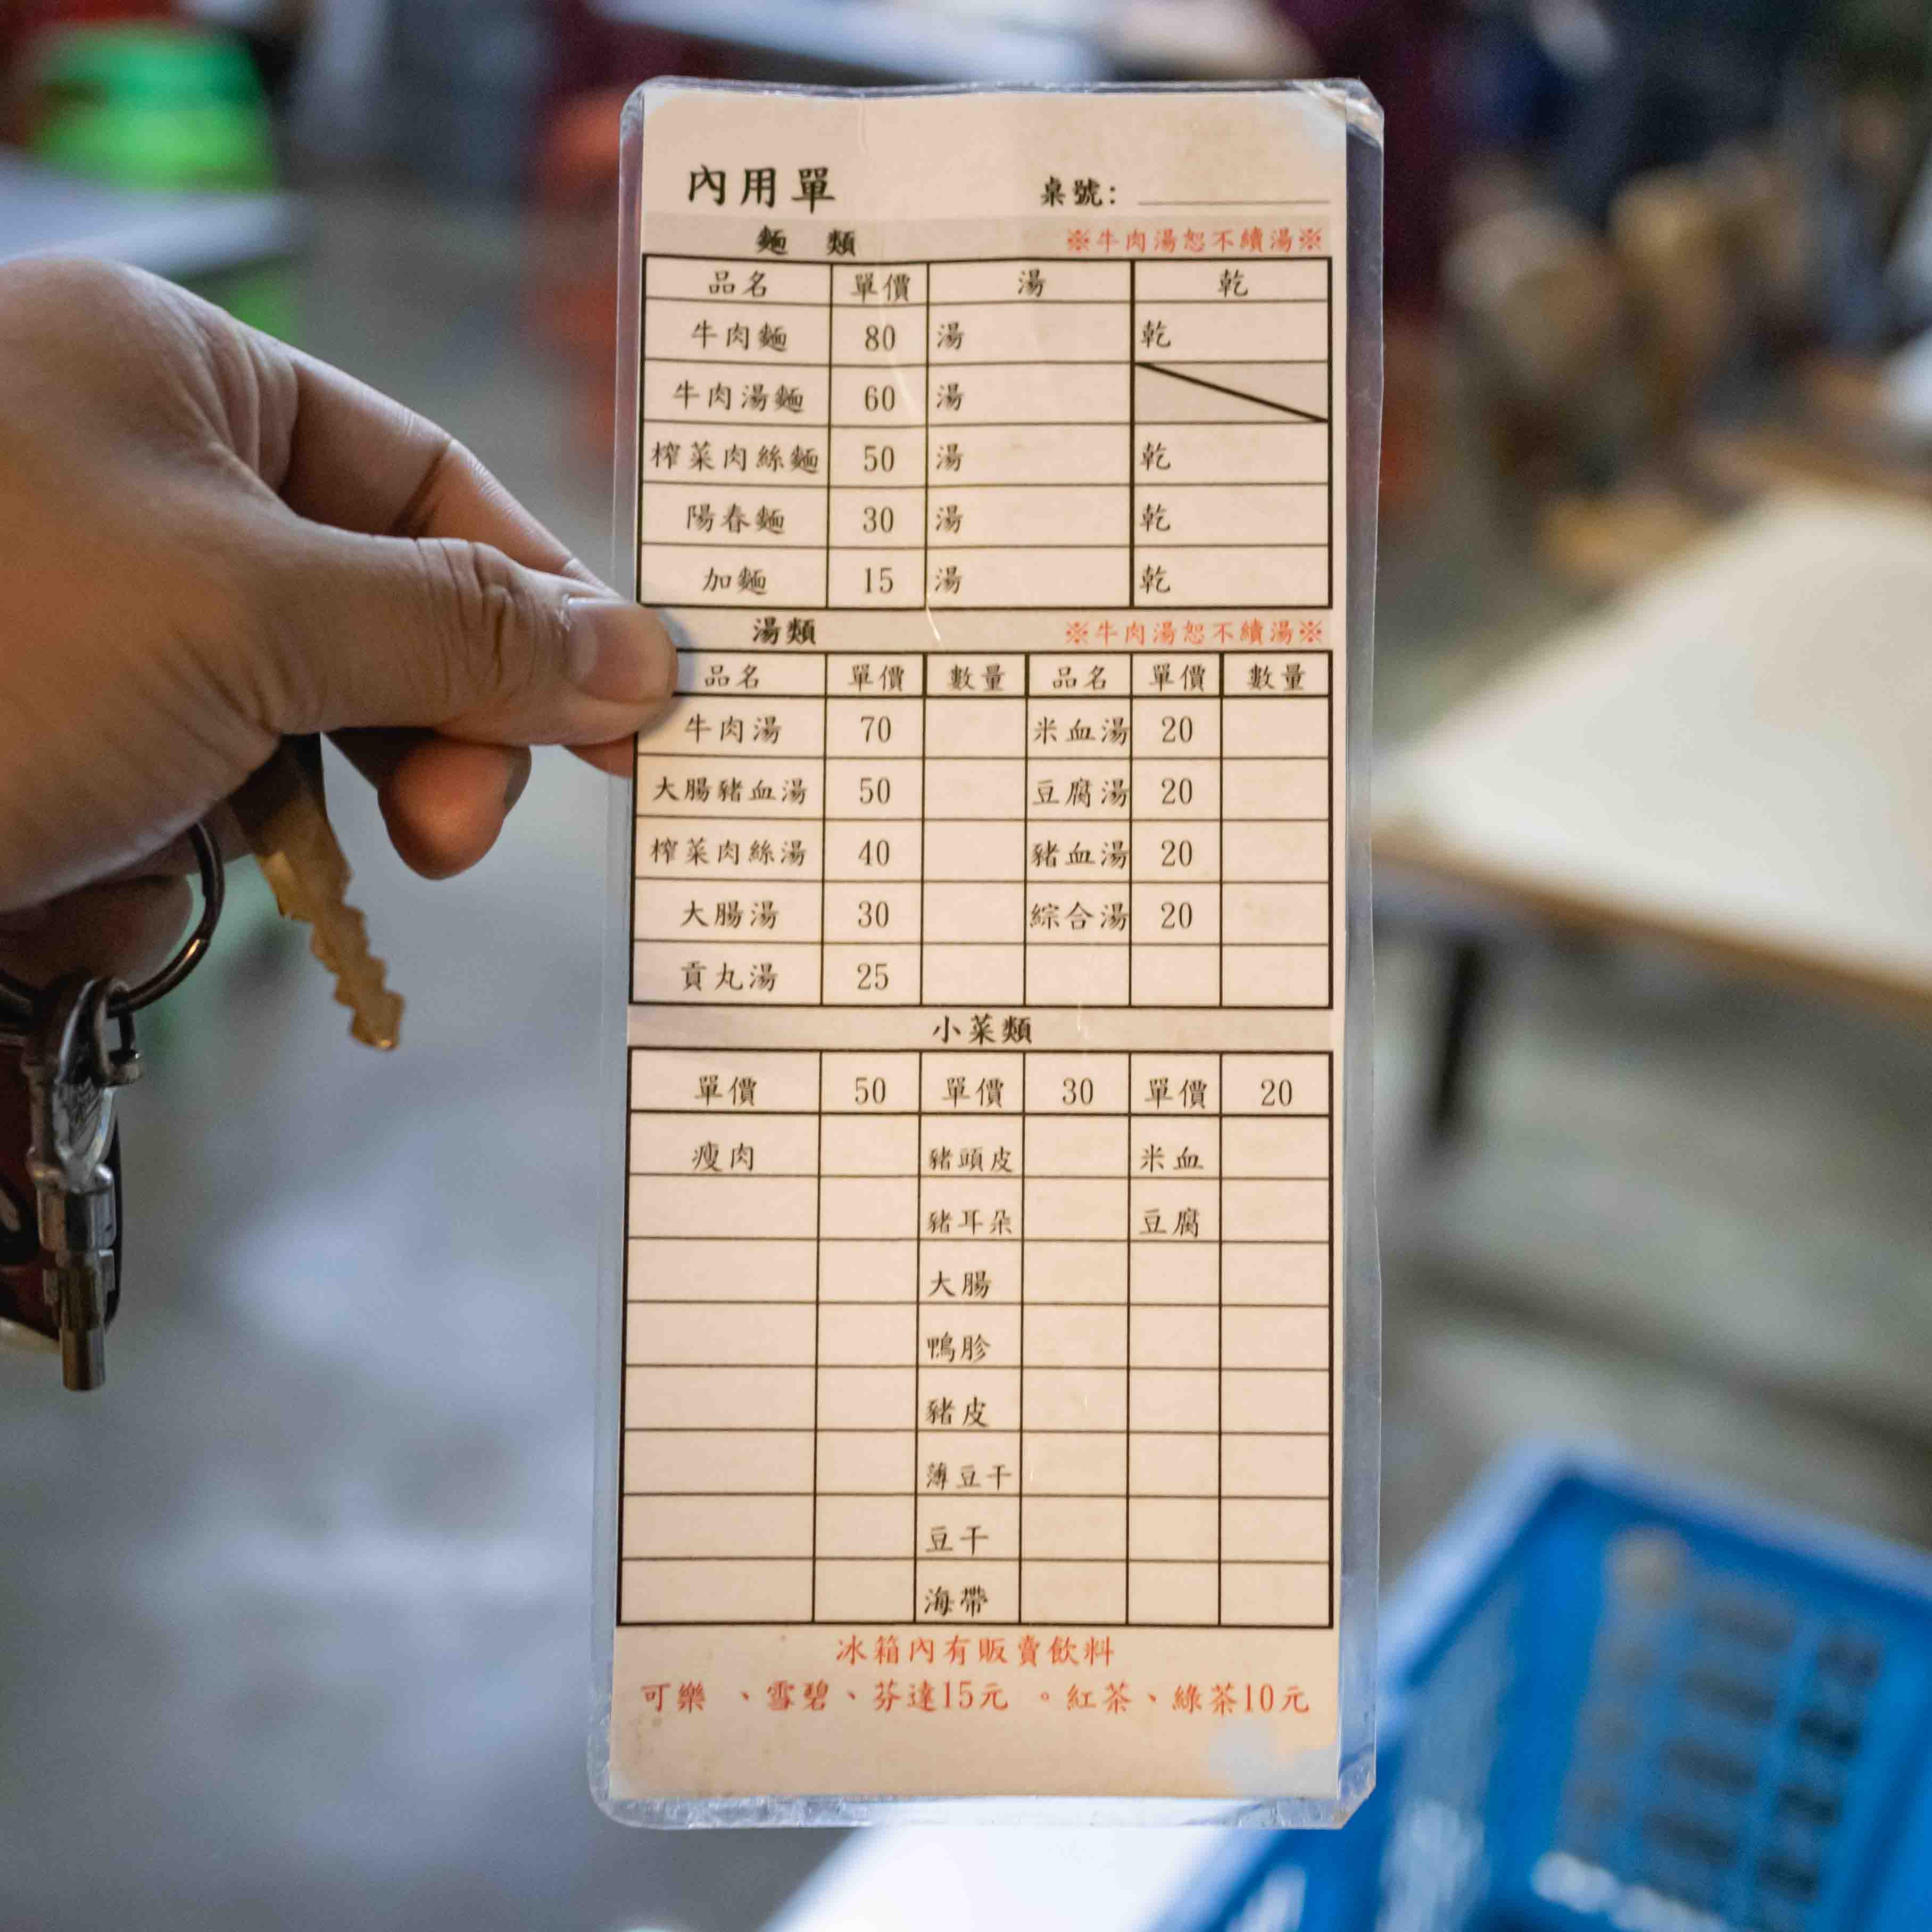 內用單 桌號：
麵 類 ※牛肉湯恕不續湯※
品名 單價 湯 乾
牛肉麵 80 湯 乾
牛肉湯麵 60 湯
榨菜肉絲麵 50 湯 乾
陽春麵 30 湯 乾
加麵 15 湯 乾
湯類 ※牛肉湯恕不續湯※
品名 單價 數量 品名 單價 數量
牛肉湯 70 米血湯 20
大腸豬血湯 50 豆腐湯 20
榨菜肉絲湯 40 豬血湯 20
大腸湯 30 綜合湯 20
貢丸湯 25
小菜類
單價 50 單價 30 單價 20
瘦肉 豬頭皮 米血
豬耳朵 豆腐
大腸
鴨胗
豬皮
薄豆干
豆干
海帶
冰箱內有販賣飲料
可樂 、雪碧、芬達15元 。紅茶、綠茶10元